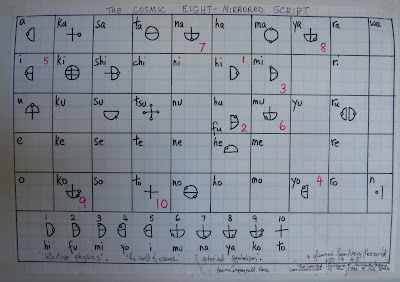 THE COSMIC EIGHT-MIRRORED SCRIPT
a ka sa ta na ha ma ya ra wa
7 8
i 5 ki shi chi ni hi 1 mi ri
3
u ku su tsu nu hu mu yu ru
fu 2 6
e ke se te ne he me re
o ko so to no ho mo yo 4 ro n
9 10
1 2 3 4 5 6 7 8 9 10
hi fu mi yo i mu na ya ko to
"intuitive physics". "the world is sound" & spherical symbolism.